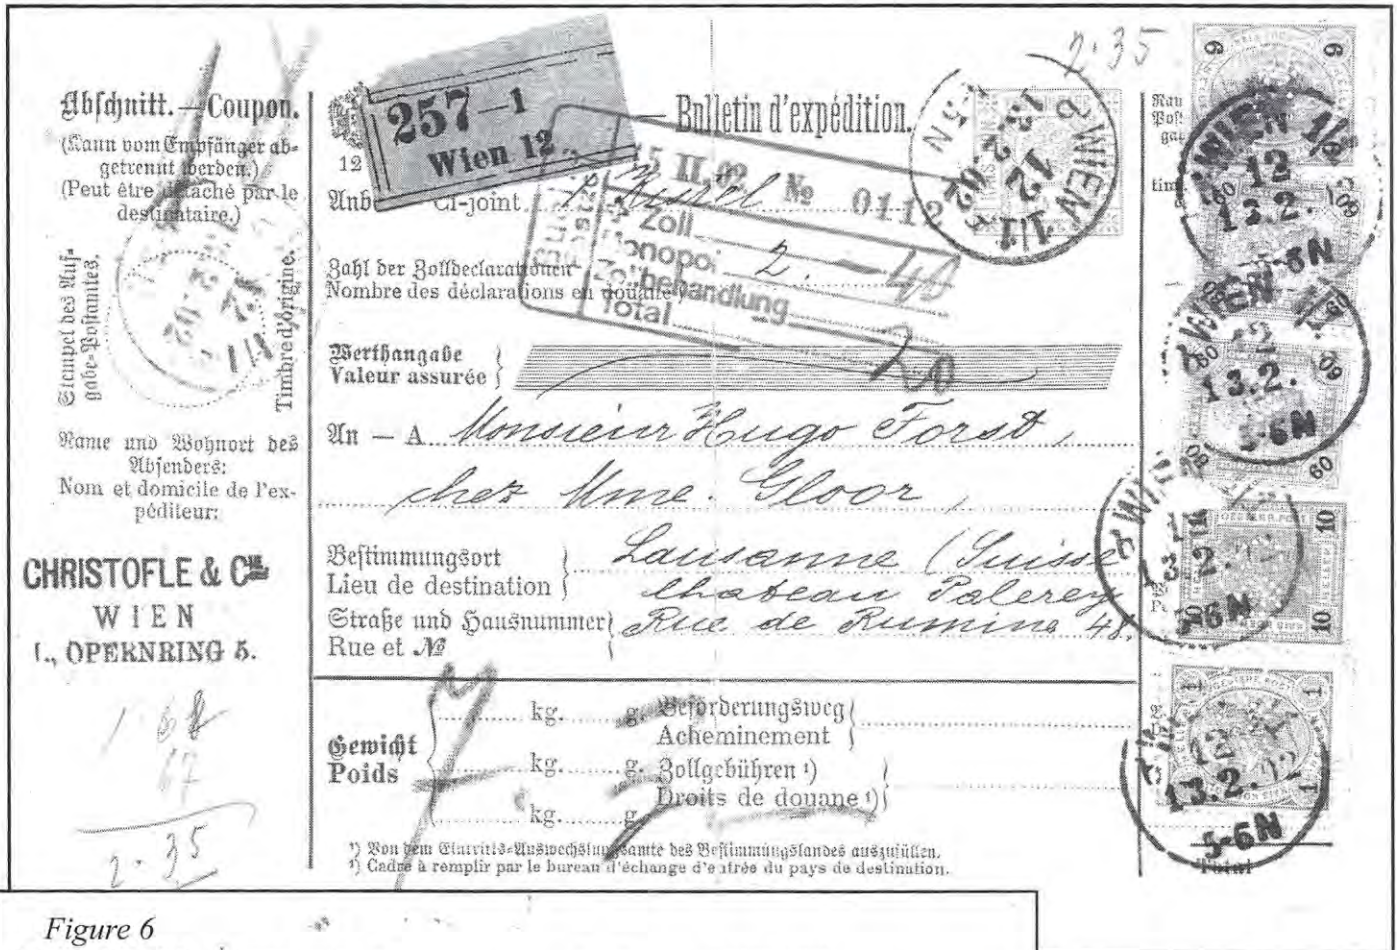 Abschnitt. — Coupon.
(Kann vom Empfänger ab-
getrennt werden.)
(Peut être détaché par le
destinataire.)
Stempel des Auf-
gabe-Postamtes.
Timbre d'origine.
Name und Wohnort des
Absenders:
Nom et domicile de l'ex-
péditeur:
CHRISTOFLE & CIE
WIEN
I., OPERNRING 5.
1·68
67
2·35
257—1
Wien 12
— Bulletin d'expédition.
2·35
12
Ci-joint
II.02 № 011
Zoll
Monopol 2. — 40
Zollbehandlung
Total 20
Zahl der Zolldeclarationen
Nombre des déclarations en douane
Werthangabe
Valeur assurée
An — A Monsieur Hugo Forst,
chez Mme. Gloor,
Bestimmungsort
Lieu de destination
Lausanne (Suisse
Chateau Palerey
Straße und Hausnummer
Rue et №
Rue de Rumine 48.
Gewicht
Poids
kg. g.
kg. g.
kg. g.
Beförderungsweg
Acheminement
Zollgebühren ¹)
Droits de douane ¹)
¹) Von dem Eintritts-Auswechslungsamte des Bestimmungslandes auszufüllen.
¹) Cadre à remplir par le bureau d'échange d'entrée du pays de destination.
WIEN
12
13.2.
5-6N
WIEN
13.2.
5-6N
13.2.
13.2.02
5-6N
6
60
60
10
1
Total
Figure 6